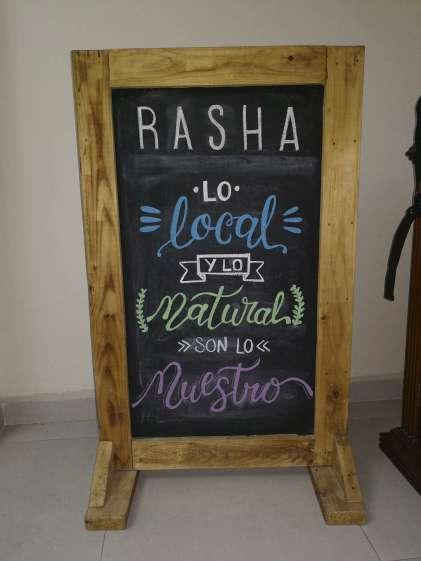 RASHA
·LO·
local
Y LO
Natural
» SON LO «
Nuestro